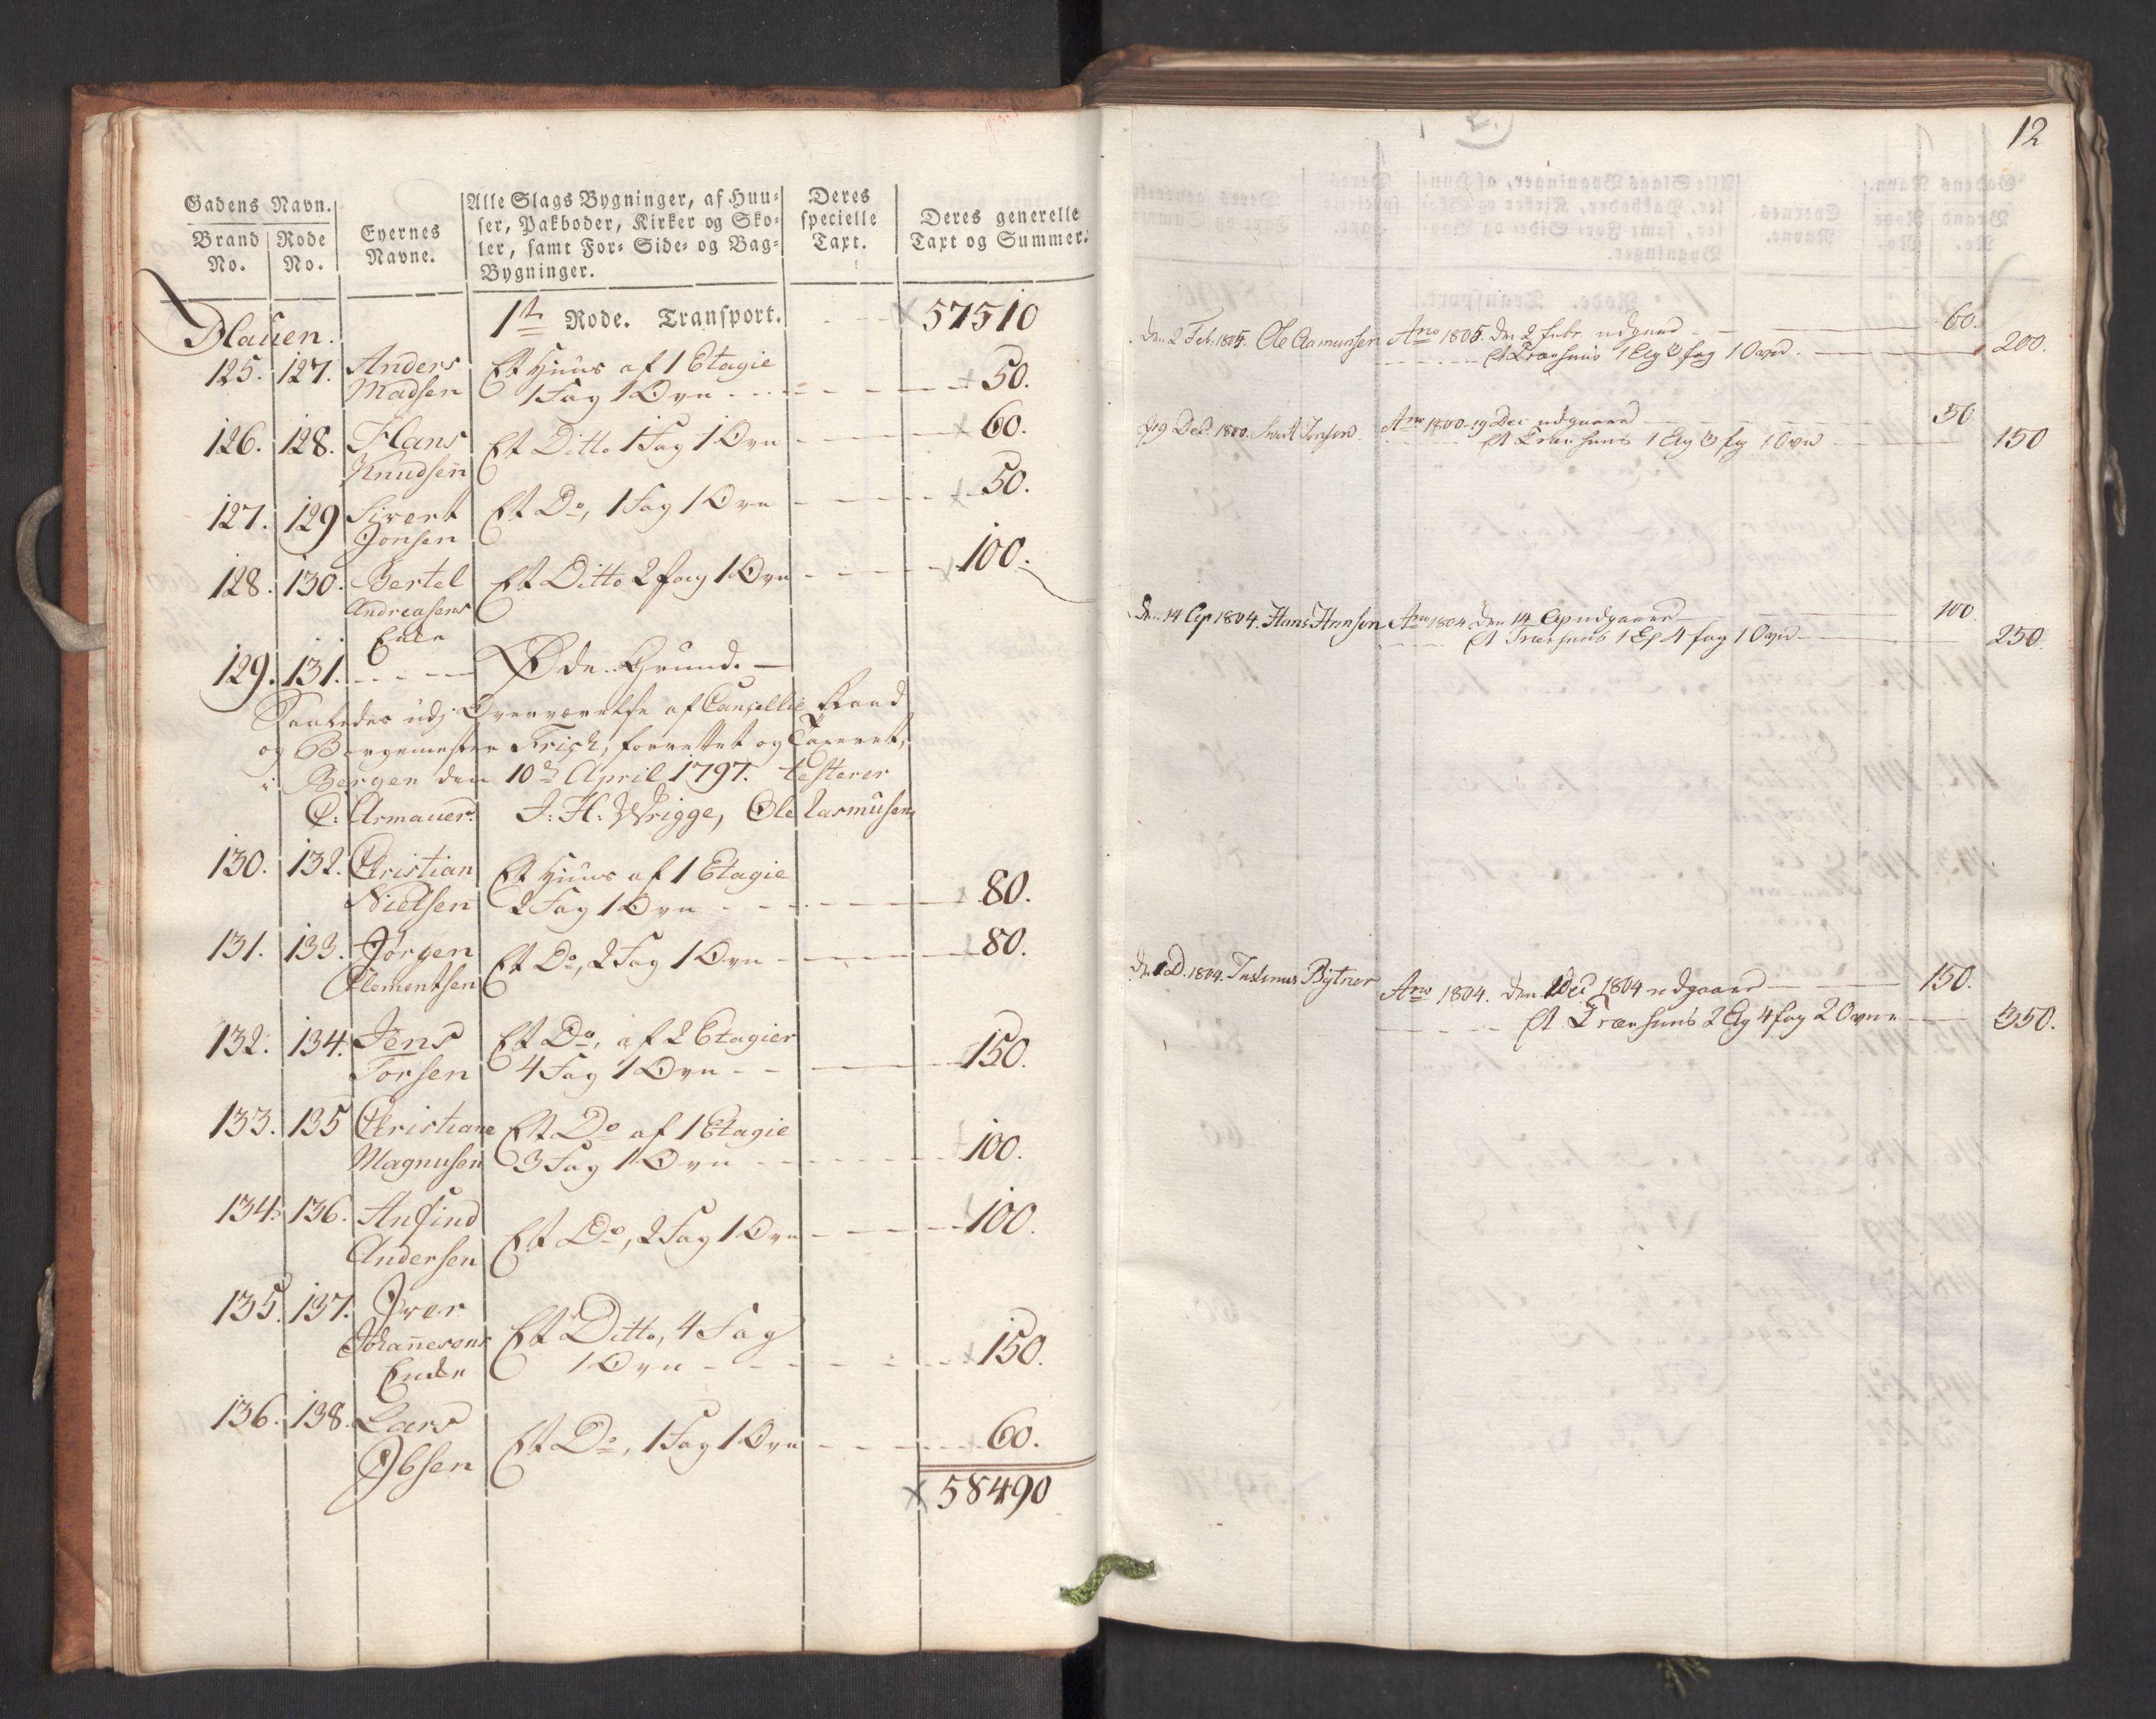 Gadens Navn.
Brand No.
Rode No.
Eyernes Navne.
Alle Slags Bygninger, af Huu-
ser, Pakboder, Kirker og Sko-
ler, samt For- Side- og Bag-
Bygninger.
Deres
specielle
Taxt.
Deres generelle
Taxt og Summer.
1te Rode. Transport. 57510
125. 127. Anders Et Huus af 1 Etagie
Madsen 1 Fag 1 Ovn 50.
126. 128. Hans Et Ditto 1 Fag 1 Ovn 60.
Knudsen
127. 129 Sivert Et Do, 1 Fag 1 Ovn 50.
Jonsen
128. 130. Bertel Et Ditto 2 fag 1 Ovn 100.
Andreasens
Enke
129. 131. Øde Grund.
Saaledes udj Overværelse af Cancellie Raad
og Borgemester Frisch, forrettet og Taxeret,
i Bergen den 10de April 1797. testerer
C: Armauer. J: H: Wrigge, Ole Rasmusen
130. 132. Christian Et Huus af 1 Etagie
Nielsen 2 Fag 1 Ovn 80.
131. 133. Jørgen Et Do, 2 Fag 1 Ovn 80.
Clementsen
132. 134. Jens Et Do, af 2 Etagier
Torsen 4 Fag 1 Ovn 150.
133. 135 Christiane Et Do af 1 Etagie
Magnusen 3 Fag 1 Ovn 100.
134. 136. Anfind Et Do, 2 Fag 1 Ovn 100.
Andersen
135. 137. Iver Et Ditto, 4 Fag
Johannesens 1 Ovn 150.
Enke
136. 138. Lars Et Do, 1 Fag 1 Ovn 60.
Ibsen
58490
12
den 2 Feb. 1805. Ole Aamunsen Ano 1805. den 2 Febr udgaard 60.
Et Træehuus 1 Etg 3 fag 1 Ovn 200.
19 Dec. 1800. Sivert Jonsen Ano 1800 19 Dec udgaard 50
Et Træehuus 1 Etg 3 fag 1 Ovn 150
den 14 Ap 1804. Hans Hansen Ano 1804 den 14 Ap udgaard 100.
Et Træehuus 1 Et 4 fag 1 Ovn 250.
den 1 D. 1804. Justinus Bytner Ano 1804. den 1 Dec 1804 udgaard 150.
Et Træehuus 2 Etg 4 fag 2 Ovne 350.